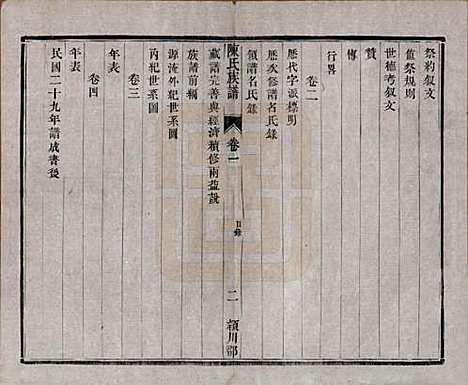 祭約叙文
值祭規則
世德考叙文
贊
傳
行畧
卷二
歷代字派標明
歷次修譜名氏錄
領譜名氏錄
陳氏族譜 卷一 目錄 二 潁川郡
藏譜完善與經濟積修兩益說
族譜前稿
源淹外紀世系圖
內紀世系圖
卷三
年表
卷四
年表
民國二十九年譜成書後